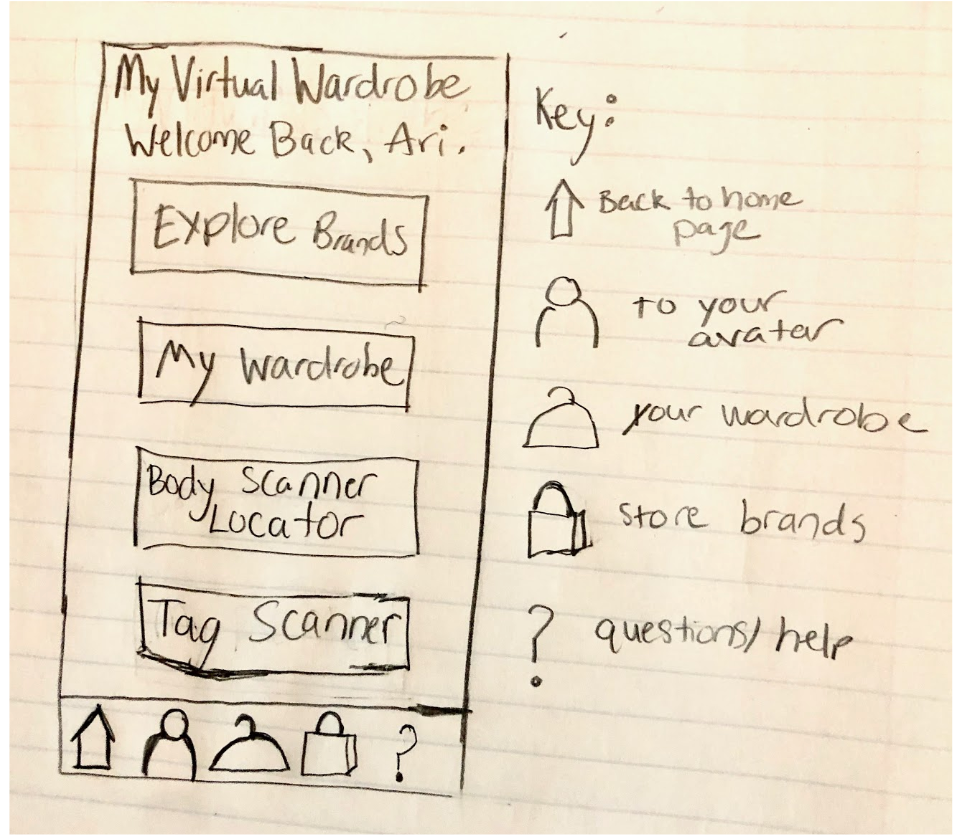 My Virtual Wardrobe
Welcome Back, Ari.
Explore Brands
My Wardrobe
Body Scanner
Locator
Tag Scanner
?
Key:
Back to home
page
to your
avatar
your wardrobe
store brands
? questions/help